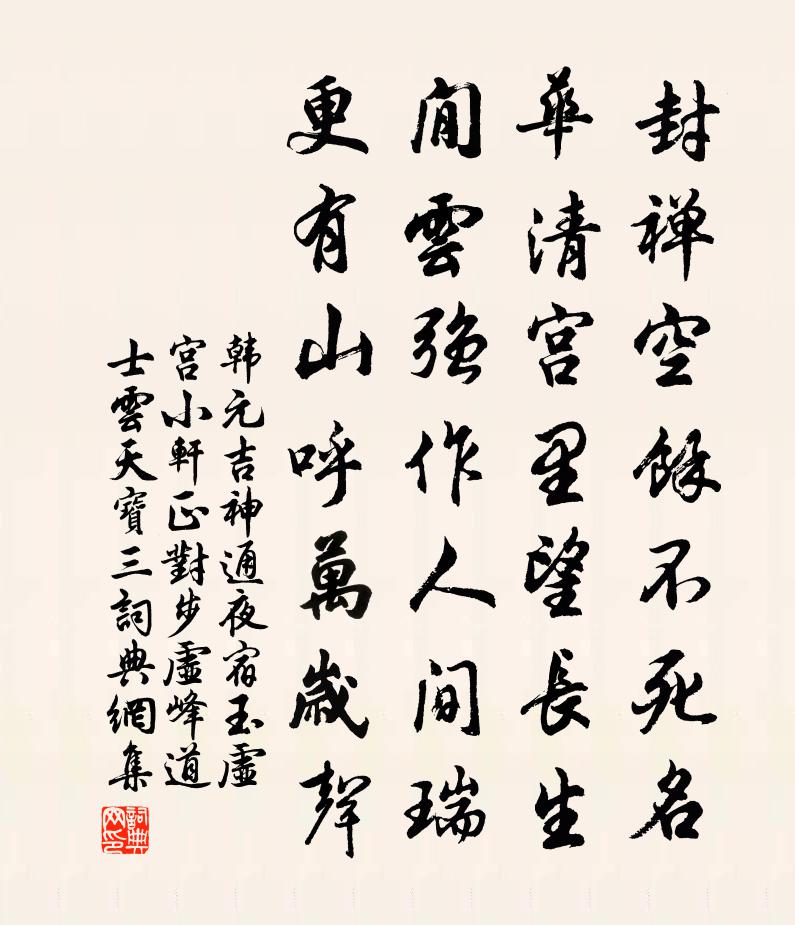 封禅空餘不死名
華清宮里望長生
閒雲強作人間瑞
更有山呼萬歲聲
韩元吉神通夜宿玉虛
宮小軒正對步虛峰道
士雲天寶三詞典網集
詞典網印